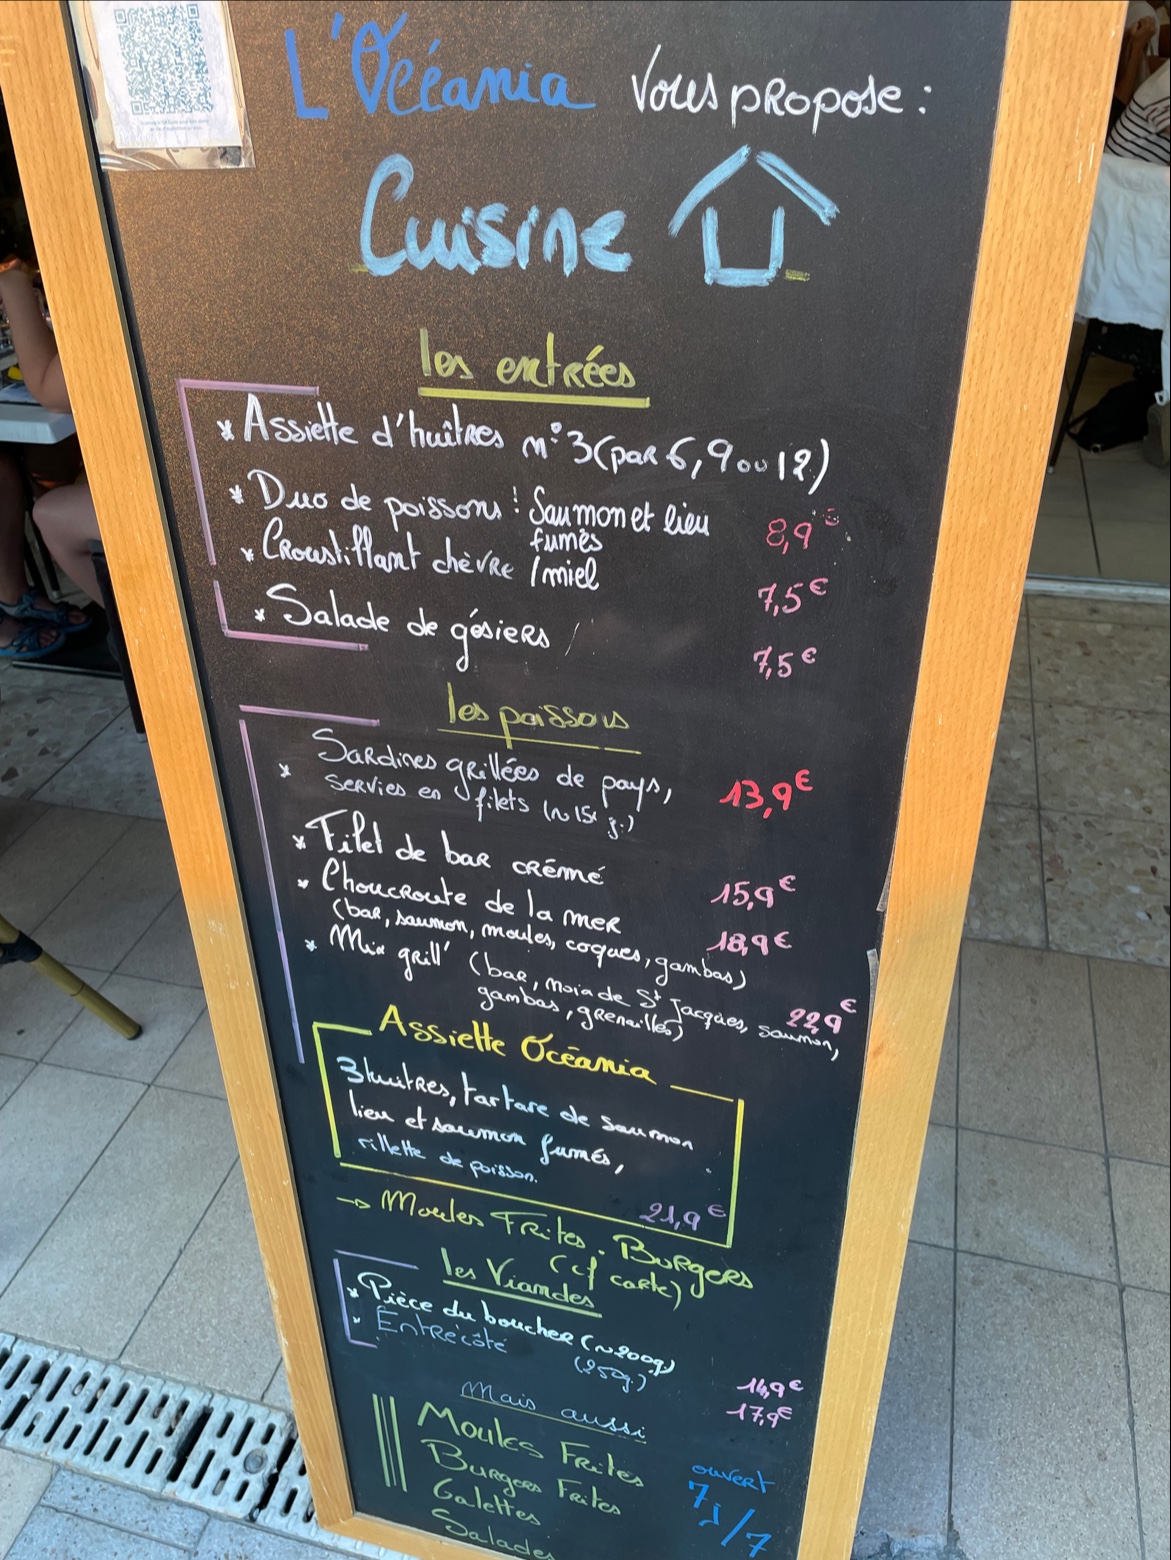 L'Océania vous propose :
Cuisine
les entrées
* Assiette d'huîtres n°3 (par 6, 9 ou 12)
* Duo de poissons : Saumon et lieu
fumés
8,9€
* Croustillant chèvre / miel
7,5€
* Salade de gésiers /
7,5€
les poissons
* Sardines grillées de pays,
servies en filets
13,9€
* Filet de bar crémé
15,9€
* Choucroute de la mer
18,9€
(bar, saumon, moules, coques, gambas)
* Mix grill' (bar, noix de St Jacques, saumon,
gambas, grenailles)
22,9€
Assiette Océania
3 huîtres, tartare de saumon
lieu et saumon fumés,
rillette de poisson.
21,9€
→ Moules Frites. Burgers
(cf carte)
les Viandes
* Pièce du boucher (~200g)
14,9€
* Entrecôte (250g.)
17,9€
Mais aussi
Moules Frites
Burgers Frites
Galettes
Salades
ouvert
7j/7